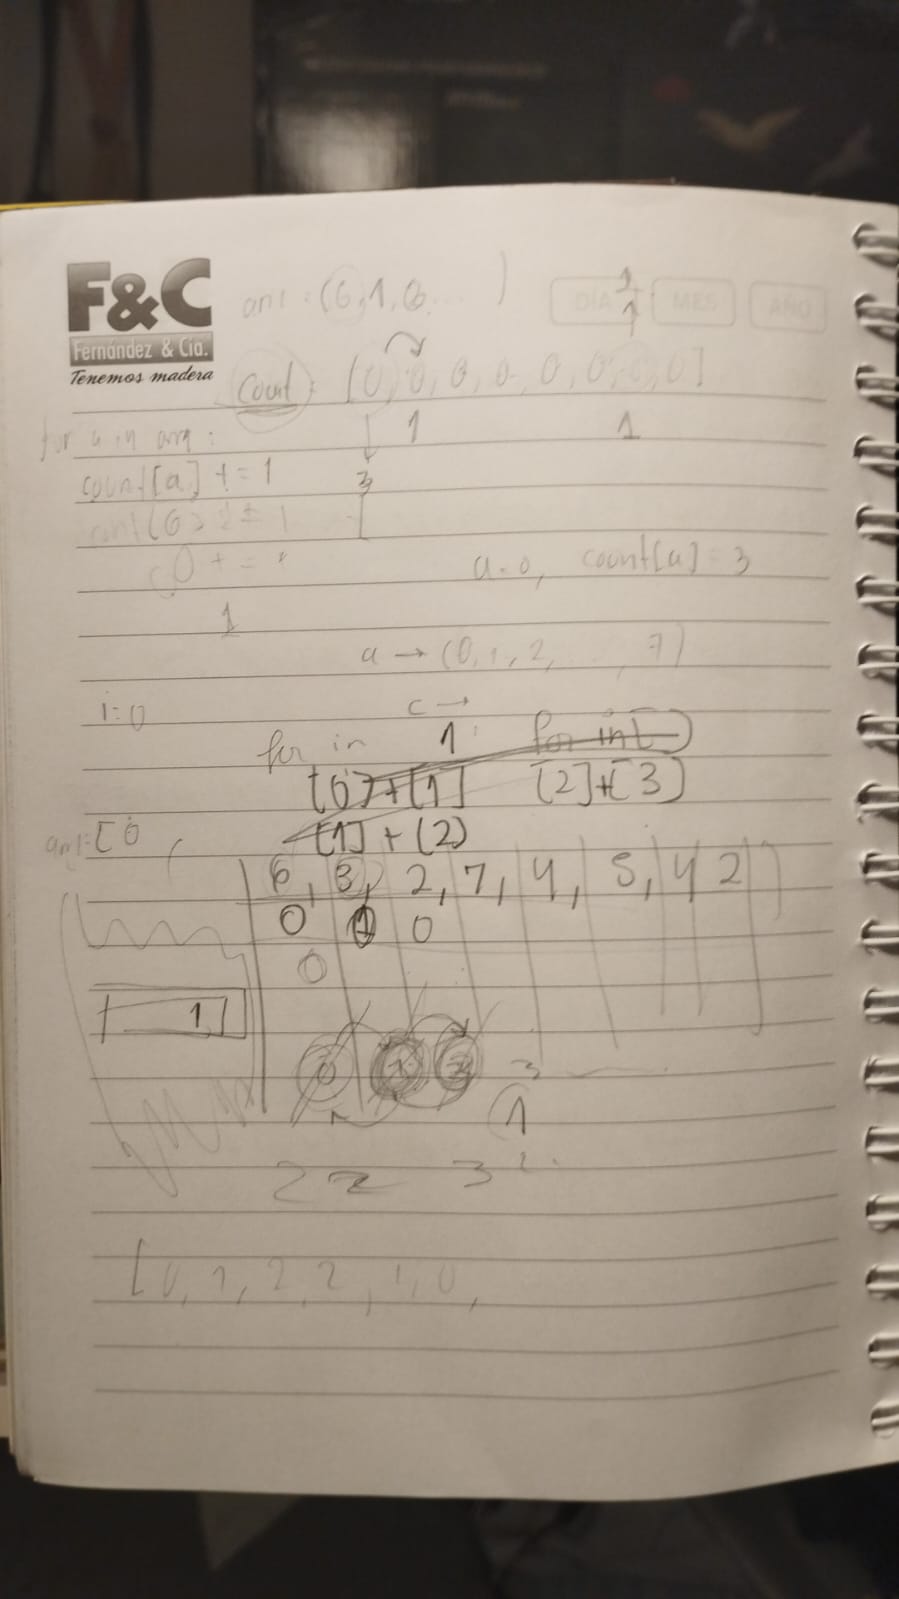 F&C
Fernández & Cía.
Tenemos madera
DÍA MES AÑO
1
1
Count: [0, 0, 0, 0, 0, 0, 0, 0]
1 1
count[a] += 1
3
a=0, count[a]=3
1
a → (0, 1, 2, ..., 7)
i=0
c →
for in 1 for int
[0]+[1] [2]+[3]
[1]+(2)
6, 3, 2, 7, 4, 5, 4 2
0 1 0
0
1
0 1 2 3
1
2 2 3
[0, 1, 2, 2, 1, 0,